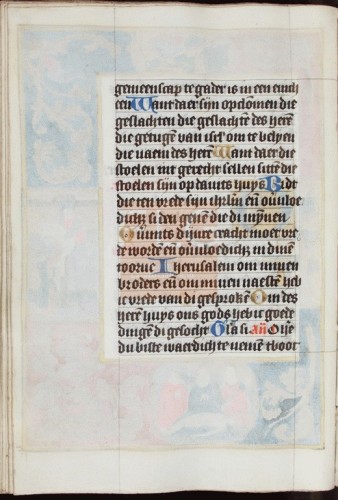 gemeenscap te gader is in een ewich
een Want daer sijn opclommen die
geslachten die geslachten des heren
die getuge van israel om te belyen
die naem des heren Want daer die
stoelen mit gerecht sellen sitten die
stoelen sijn op dauits huys Bidt
die ten vrede sijn ihrlm en oueruloe
dich si den genen die di mynnen
in dijnre cracht moet vre
de worden en ouerloedich in dinen
toorne Iherusalem om minen
broders en om minen naesten heb
ic vrede van di gesproken Om des
heren huys ons gods heb ic goede
dingen di gesocht Gla si an O
du biste waerdich te nemen tboec